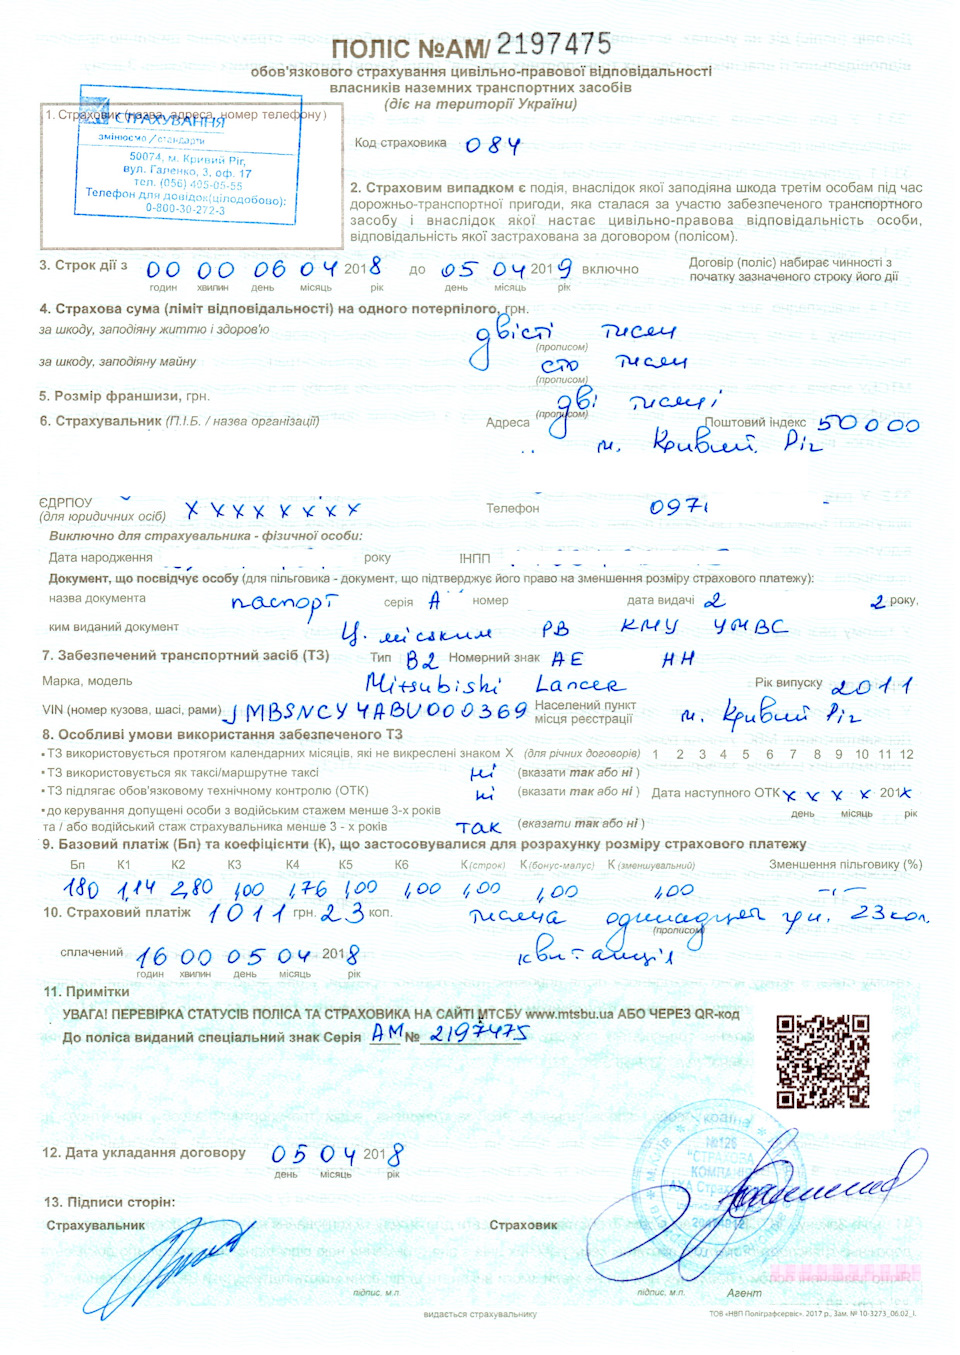 ПОЛІС №АМ/ 2197475
обов'язкового страхування цивільно-правової відповідальності
власників наземних транспортних засобів
(діє на території України)
1. Страховик (назва, адреса, номер телефону)
СТРАХУВАННЯ
змінюємо / стандарти
50074, м. Кривий Ріг,
вул. Галенко, 3, оф. 17
тел. (056) 405-05-55
Телефон для довідок(цілодобово):
0-800-30-272-3
Код страховика 084
2. Страховим випадком є подія, внаслідок якої заподіяна шкода третім особам під час
дорожньо-транспортної пригоди, яка сталася за участю забезпеченого транспортного
засобу і внаслідок якої настає цивільно-правова відповідальність особи,
відповідальність якої застрахована за договором (полісом).
3. Строк дії з 00 00 06 04 2018 до 05 04 2019 включно
годин хвилин день місяць рік день місяць рік
Договір (поліс) набирає чинності з
початку зазначеного строку його дії
4. Страхова сума (ліміт відповідальності) на одного потерпілого, грн.
за шкоду, заподіяну життю і здоров'ю двісті тисяч
(прописом)
за шкоду, заподіяну майну сто тисяч
(прописом)
5. Розмір франшизи, грн. дві тисячі
(прописом)
6. Страхувальник (П.І.Б. / назва організації) Адреса Поштовий індекс 50000
м. Кривий Ріг
ЄДРПОУ
(для юридичних осіб) х х х х х х х х Телефон 097
Виключно для страхувальника - фізичної особи:
Дата народження року ІНПП
Документ, що посвідчує особу (для пільговика - документ, що підтверджує його право на зменшення розміру страхового платежу):
назва документа паспорт серія А номер дата видачі 2 2 року,
ким виданий документ Ц. міським РВ КМУ УМВС
7. Забезпечений транспортний засіб (ТЗ) Тип В2 Номерний знак АЕ НН
Марка, модель Mitsubishi Lancer Рік випуску 2011
VIN (номер кузова, шасі, рами) JMBSNCY4ABU000369 Населений пункт
місця реєстрації м. Кривий Ріг
8. Особливі умови використання забезпеченого ТЗ
• ТЗ використовується протягом календарних місяців, які не викреслені знаком Х (для річних договорів) 1 2 3 4 5 6 7 8 9 10 11 12
• ТЗ використовується як таксі/маршрутне таксі ні (вказати так або ні )
• ТЗ підлягає обов'язковому технічному контролю (ОТК) ні (вказати так або ні ) Дата наступного ОТК х х х х 201х
день місяць рік
• до керування допущені особи з водійським стажем менше 3-х років
та / або водійський стаж страхувальника менше 3 - х років так (вказати так або ні )
9. Базовий платіж (Бп) та коефіцієнти (К), що застосовувалися для розрахунку розміру страхового платежу
Бп К1 К2 К3 К4 К5 К6 К (строк) К (бонус-малус) К (зменшувальний) Зменшення пільговику (%)
180 1,14 2,80 1,00 1,76 1,00 1,00 1,00 1,00 1,00 -,-
10. Страховий платіж 1011 грн. 23 коп. тисяча одинадцять грн. 23 коп.
(прописом)
сплачений 16 00 05 04 2018 квитанція
годин хвилин день місяць рік
11. Примітки
УВАГА! ПЕРЕВІРКА СТАТУСІВ ПОЛІСА ТА СТРАХОВИКА НА САЙТІ МТСБУ www.mtsbu.ua АБО ЧЕРЕЗ QR-код
До поліса виданий спеціальний знак Серія АМ № 2197475
12. Дата укладання договору 05 04 2018
день місяць рік
Україна
м. Київ
№126
"СТРАХОВА
КОМПАНІЯ
АХА Страхування
13. Підписи сторін:
Страхувальник Страховик
підпис, м.п. підпис, м.п. Агент
видається страхувальнику
ТОВ «НВП Поліграфсервіс». 2017 р., Зам. № 10-3273_06.02_І.